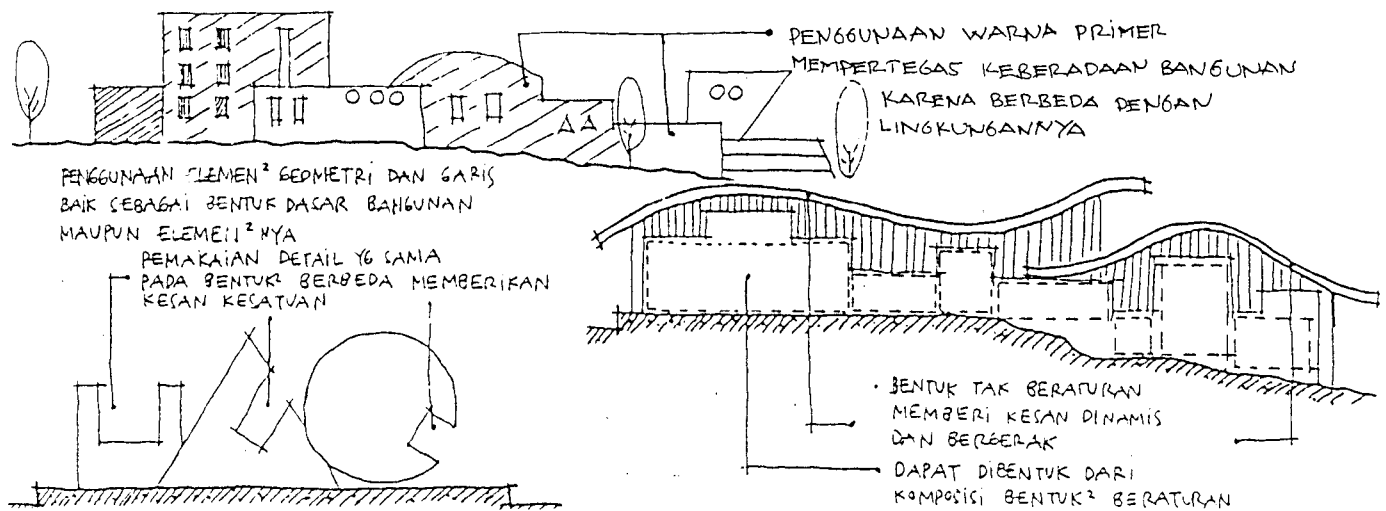 PENGGUNAAN WARNA PRIMER
MEMPERTEGAS KEBERADAAN BANGUNAN
KARENA BERBEDA DENGAN
LINGKUNGANNYA
PENGGUNAAN ELEMEN² GEOMETRI DAN GARIS
BAIK SEBAGAI BENTUK DASAR BANGUNAN
MAUPUN ELEMEN²NYA
PEMAKAIAN DETAIL YG SAMA
PADA BENTUK² BERBEDA MEMBERIKAN
KESAN KESATUAN
• BENTUK TAK BERATURAN
MEMBERI KESAN DINAMIS
DAN BERGERAK
DAPAT DIBENTUK DARI
KOMPOSISI BENTUK² BERATURAN